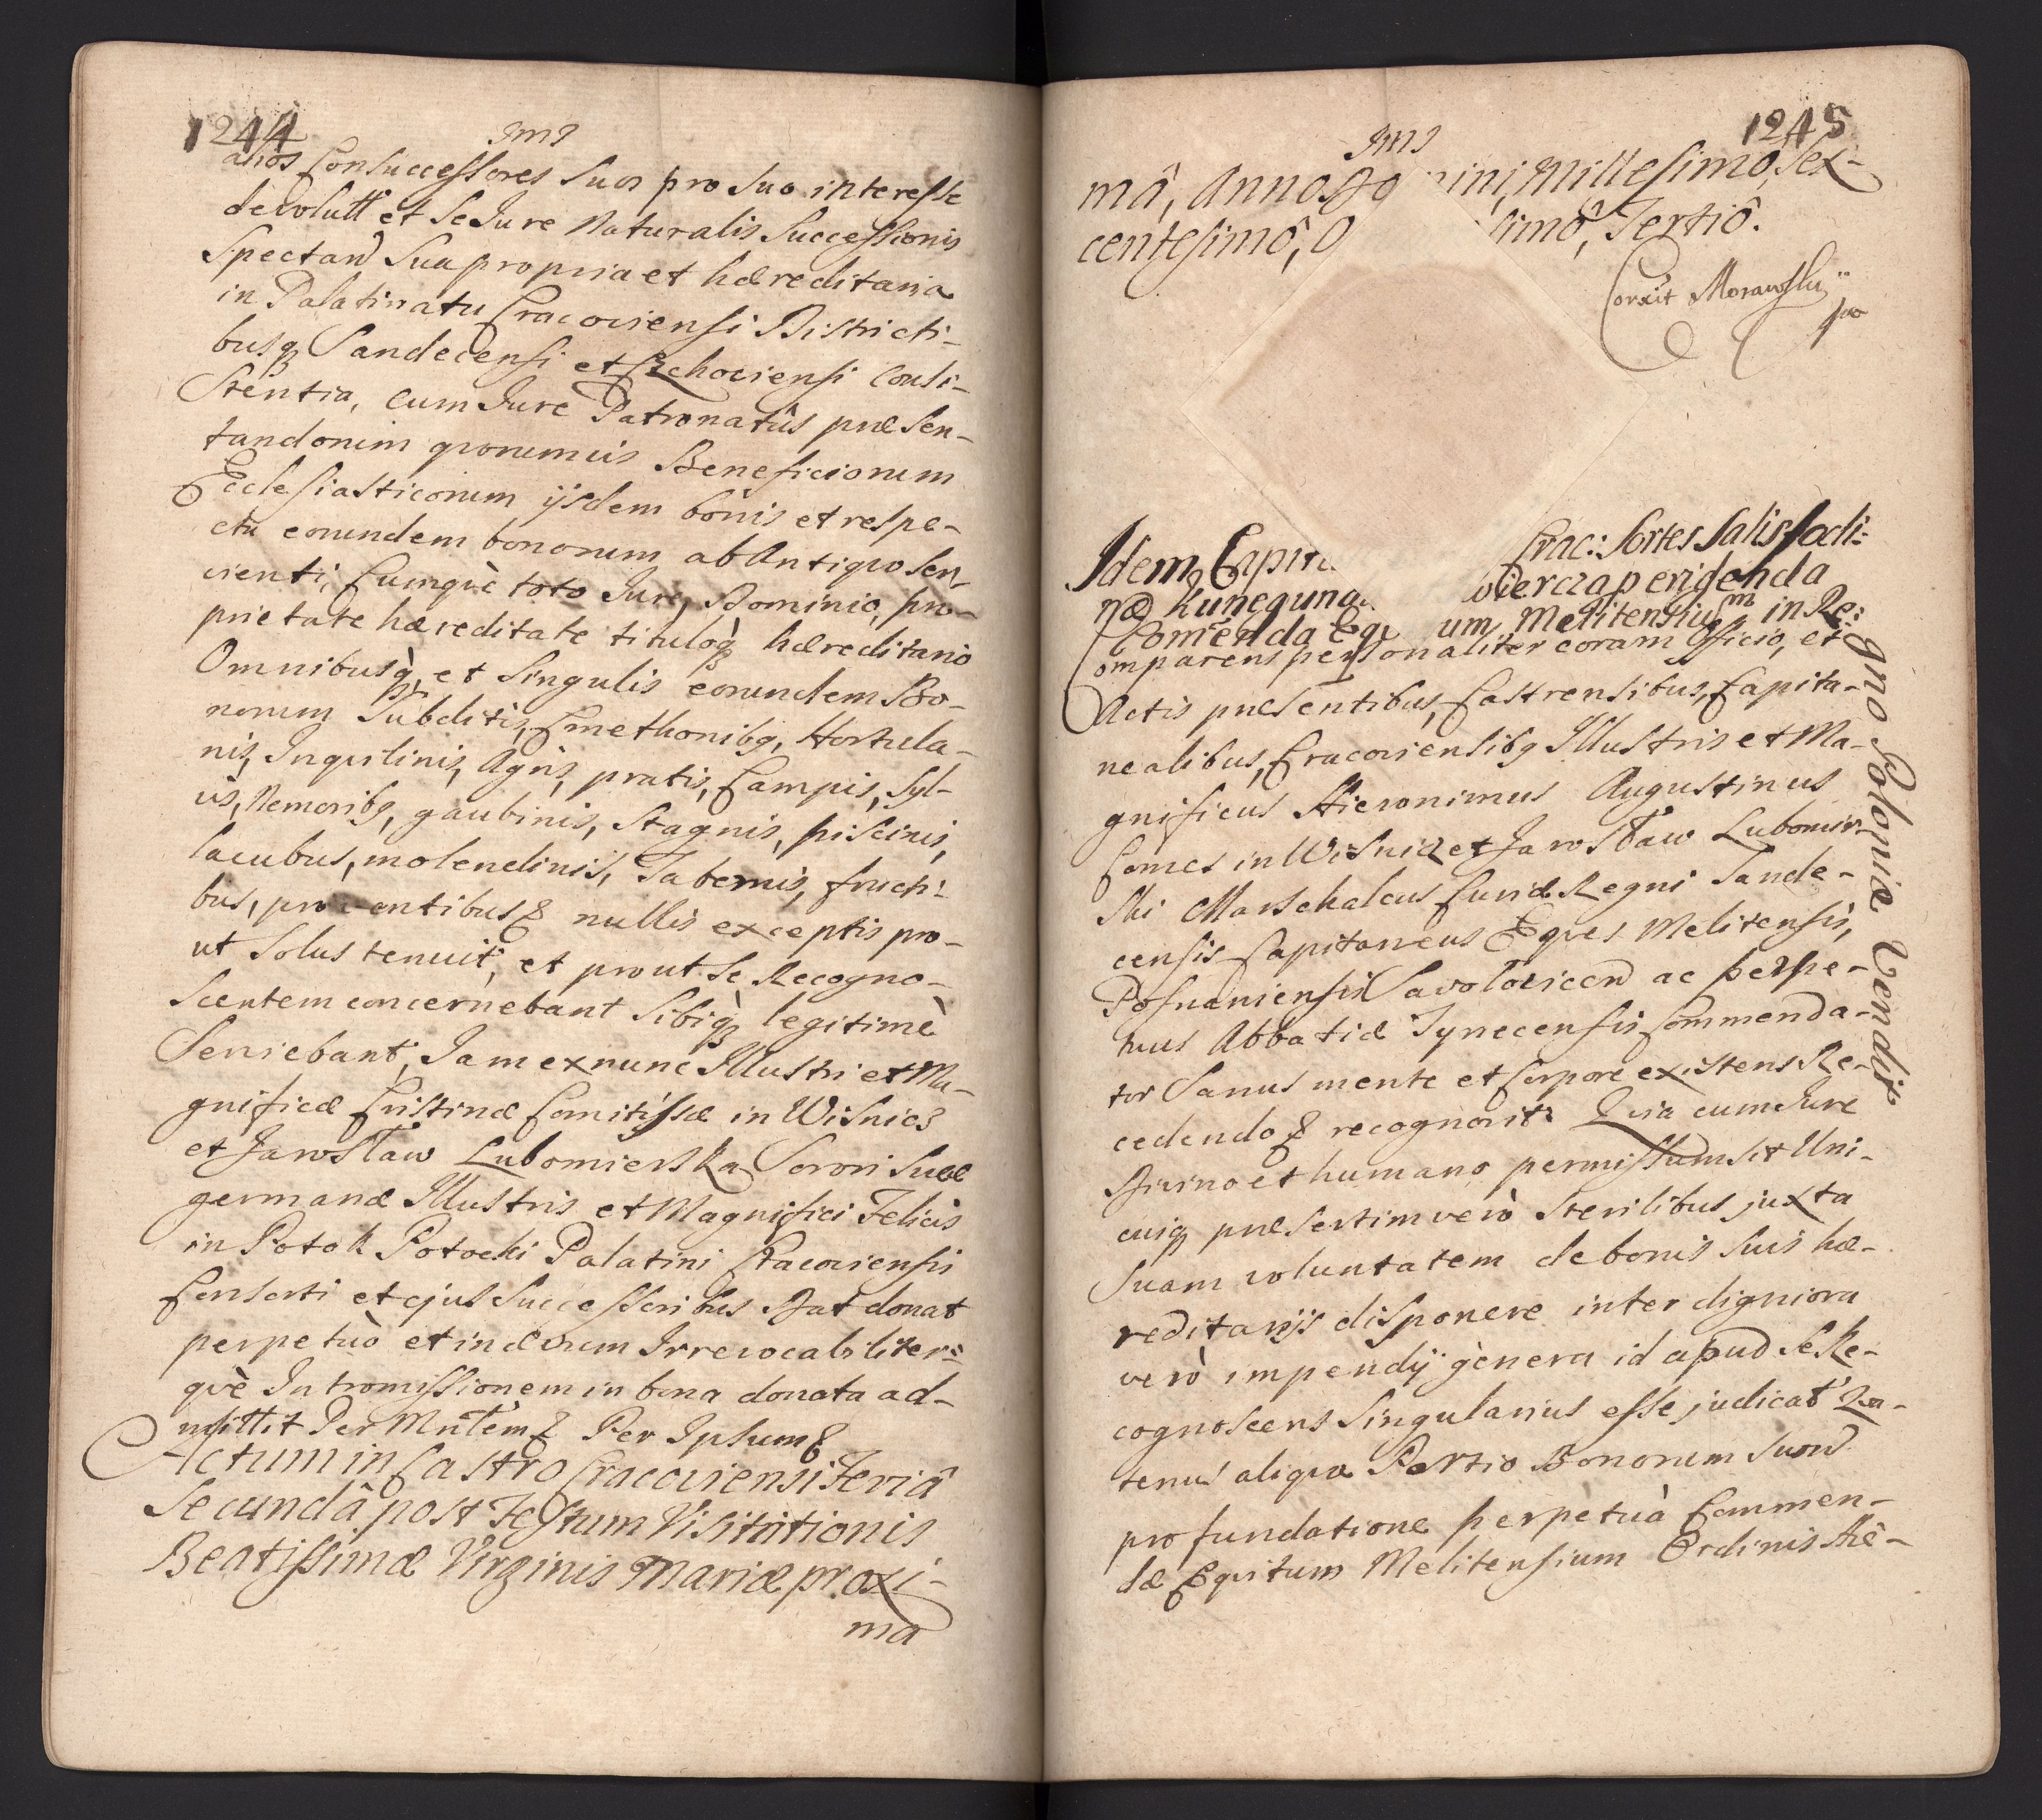 1244
Jms
alios Consuccessores suos pro suo interesse
devolutt et se Jure Naturalis Successionis
Spectañ Sua propria et hæreditaria
in Palatinatu Cracoviensi Districti-
busq Sandecensi et Czchoviensi Consi-
stentia, cum Jure Patronatûs præsen-
tandorum quorumvis Beneficiorum
Ecclesiasticorum ijsdem bonis et respe-
ctu eorundem bonorum ab Antiquo Ser-
vienti, Cumquè toto Jure, Dominio, pro-
prietate hæreditate tituloq hæreditario
Omnibusq, et Singulis eorundem Bo-
norum Subditis, Cmethonibq, Hortula-
nis, Inquilinis, Agris, pratis, Campis, Syl-
vis, Nemoribq, gaubinis, Stagnis, piscinis,
lacubus, molendinis, Tabernis, fructi-
bus, proventibus & nullis exceptis pro-
ut Solus tenuit, et prout Se Recogno-
scentem concernebant Sibiq legitimè
Seniebant, Jam ex nunc Illustri et Ma-
gnificæ Cristinæ Comitissæ in Wisnicz
et Jarosław Lubomierska Sorori Suæ
germanæ Illustris et Magnifici Felicis
in Potok Potocki Palatini Cracoviensis
Consorti et ejus Successoribus Dat donat
perpetuò et in ævum Irrevocabiliter-
què Intromissionem in bona donata ad-
mittit Per Mntem & Per Ipsum &
Actum in Castro Cracoviensi Feriâ
Secundâ post Festum Visitationis
Beatissimæ Virginis Mariæ proxi-
ma
1245
Jms
mâ, Anno Do ini, Millesimô, Sex-
centesimô, O simô, Tertiô.
Corxit Morawsky
Idem Capit Crac: Sortes Salisfodi:
næ Kunegund Wierczap erigenda
Comenda Equ um Melitensiu m in Re:
gno Poloniæ Vendit
Comparens personaliter coram Officio, et
Actis præsentibus, Castrensibus, Capita-
nealibus, Cracoviensibq Illustris et Ma-
gnificus Hieronimus Augustinus
Comes in Wisnicz et Jarosław Lubomir-
ski Marschalcus Curiæ Regni Sande-
censis Capitaneus Eques Melitensis,
Posnaniensis ac perpe-
tuus Abbatiæ Tynecensis Commenda-
tor Sanus mente et Corpore existens Re-
cedendo & recognovit: Quia cum Jure
Divino et humano permissum sit Uni-
cuiq præsertim verò Sterilibus juxta
Suam voluntatem de bonis Suis hæ-
reditarijs disponere inter digniora
verò impendij gènera id apud Se Re-
cognoscens Singularius esse judicat Qua-
tenus aliqua Portio Bonorum Suorũ
pro fundatione perpetuà Commen-
dæ Equitum Melitensium Ordinis Hie-